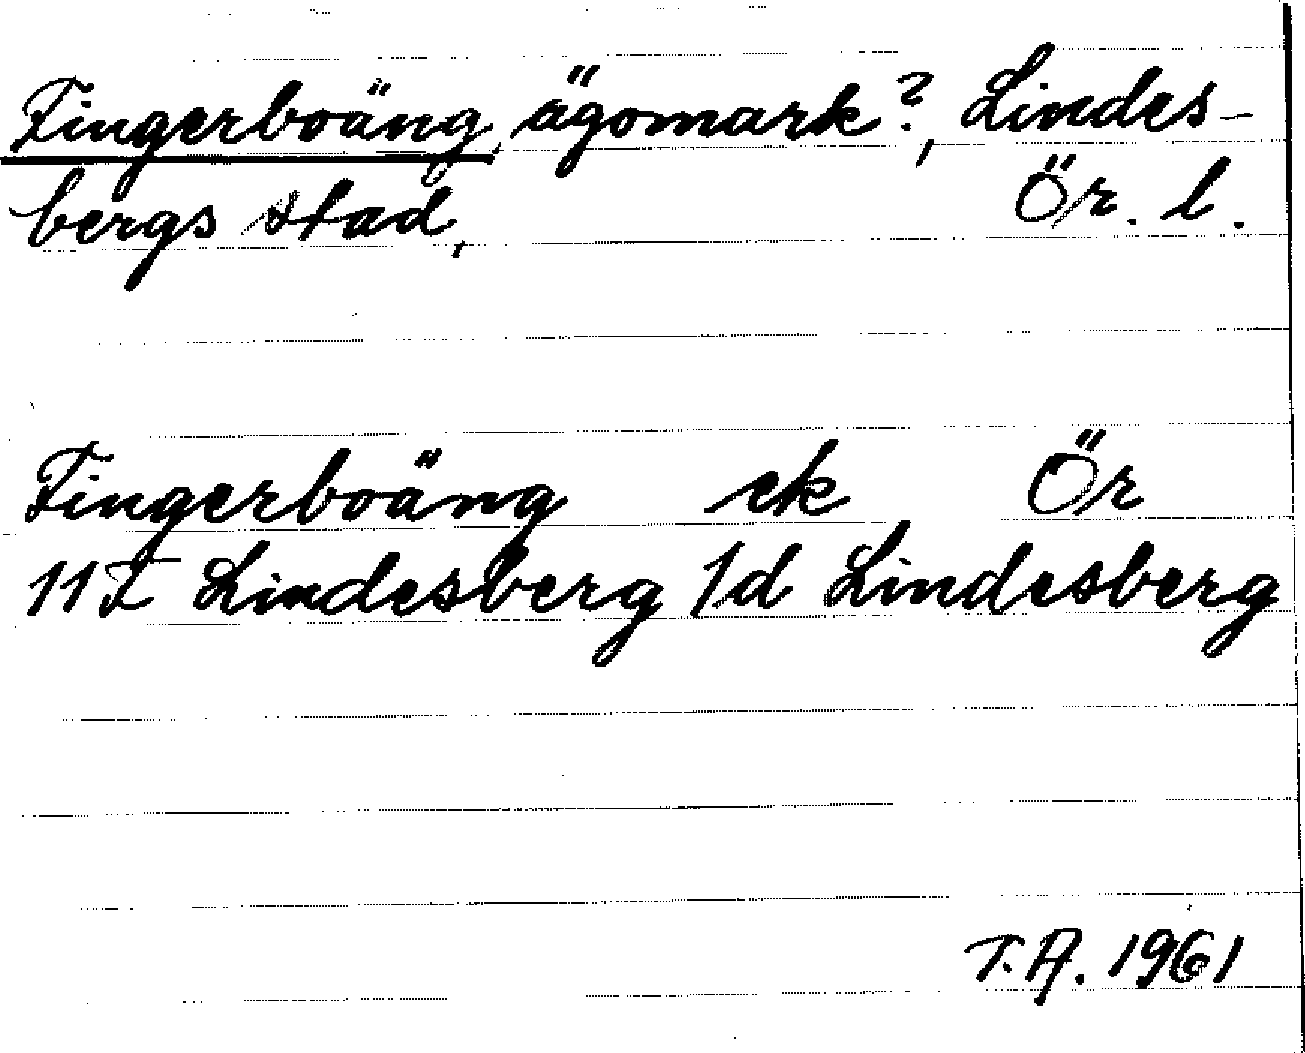 Fingerboäng, ägomark?, Lindes-
bergs stad, Ör. l.
Fingerboäng ek Ör
11F Lindesberg 1d Lindesberg
T.A. 1961